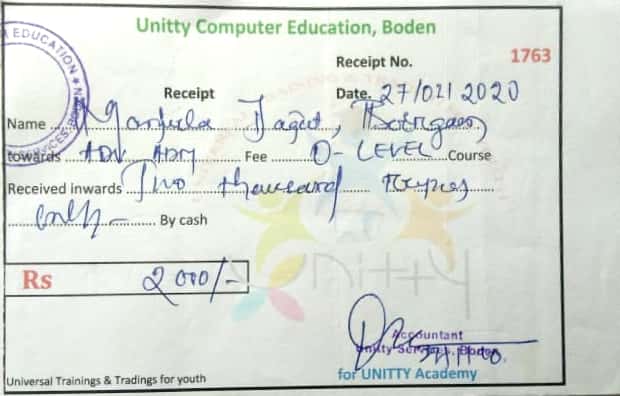 Unitty Computer Education, Boden
Receipt No. 1763
Receipt Date. 27/02/2020
Name Manjula Jagat,
towards ADV ADM Fee O-LEVEL Course
Received inwards Two thousand Rupees
only - By cash
Rs 2000/-
Accountant
Unitty Services, Boden
Universal Trainings & Tradings for youth for UNITTY Academy